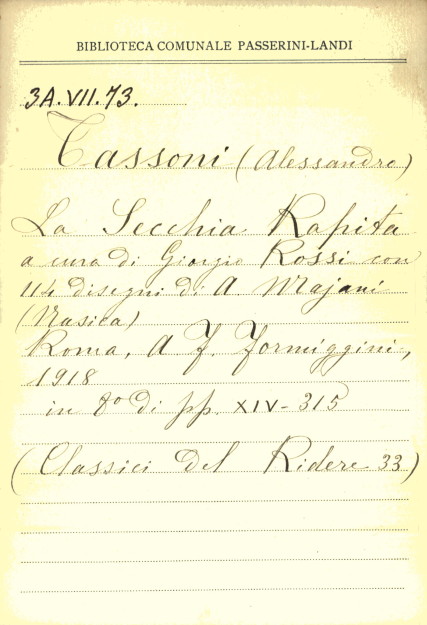 BIBLIOTECA COMUNALE PASSERINI-LANDI
3A.VII.73.
Tassoni (Alessandro)
La Secchia Rapita
a cura di Giorgio Rossi con
114 disegni di A Majani
(Nasica)
Roma, A F. Formiggini,
1918
in 8º di pp. XIV-315
(Classici del Ridere 33)